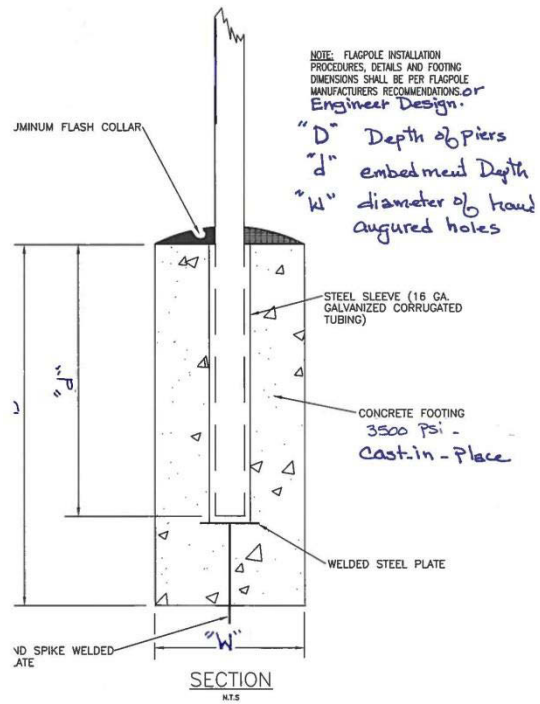 NOTE: FLAGPOLE INSTALLATION
PROCEDURES, DETAILS AND FOOTING
DIMENSIONS SHALL BE PER FLAGPOLE
MANUFACTURERS RECOMMENDATIONS. or
Engineer Design.
"D" Depth of Piers
"d" embedment Depth
"W" diameter of hand
augured holes
UMINUM FLASH COLLAR
STEEL SLEEVE (16 GA.
GALVANIZED CORRUGATED
TUBING)
"d"
CONCRETE FOOTING
3500 PSi -
Cast-in-Place
WELDED STEEL PLATE
ND SPIKE WELDED
ATE
"W"
SECTION
N.T.S